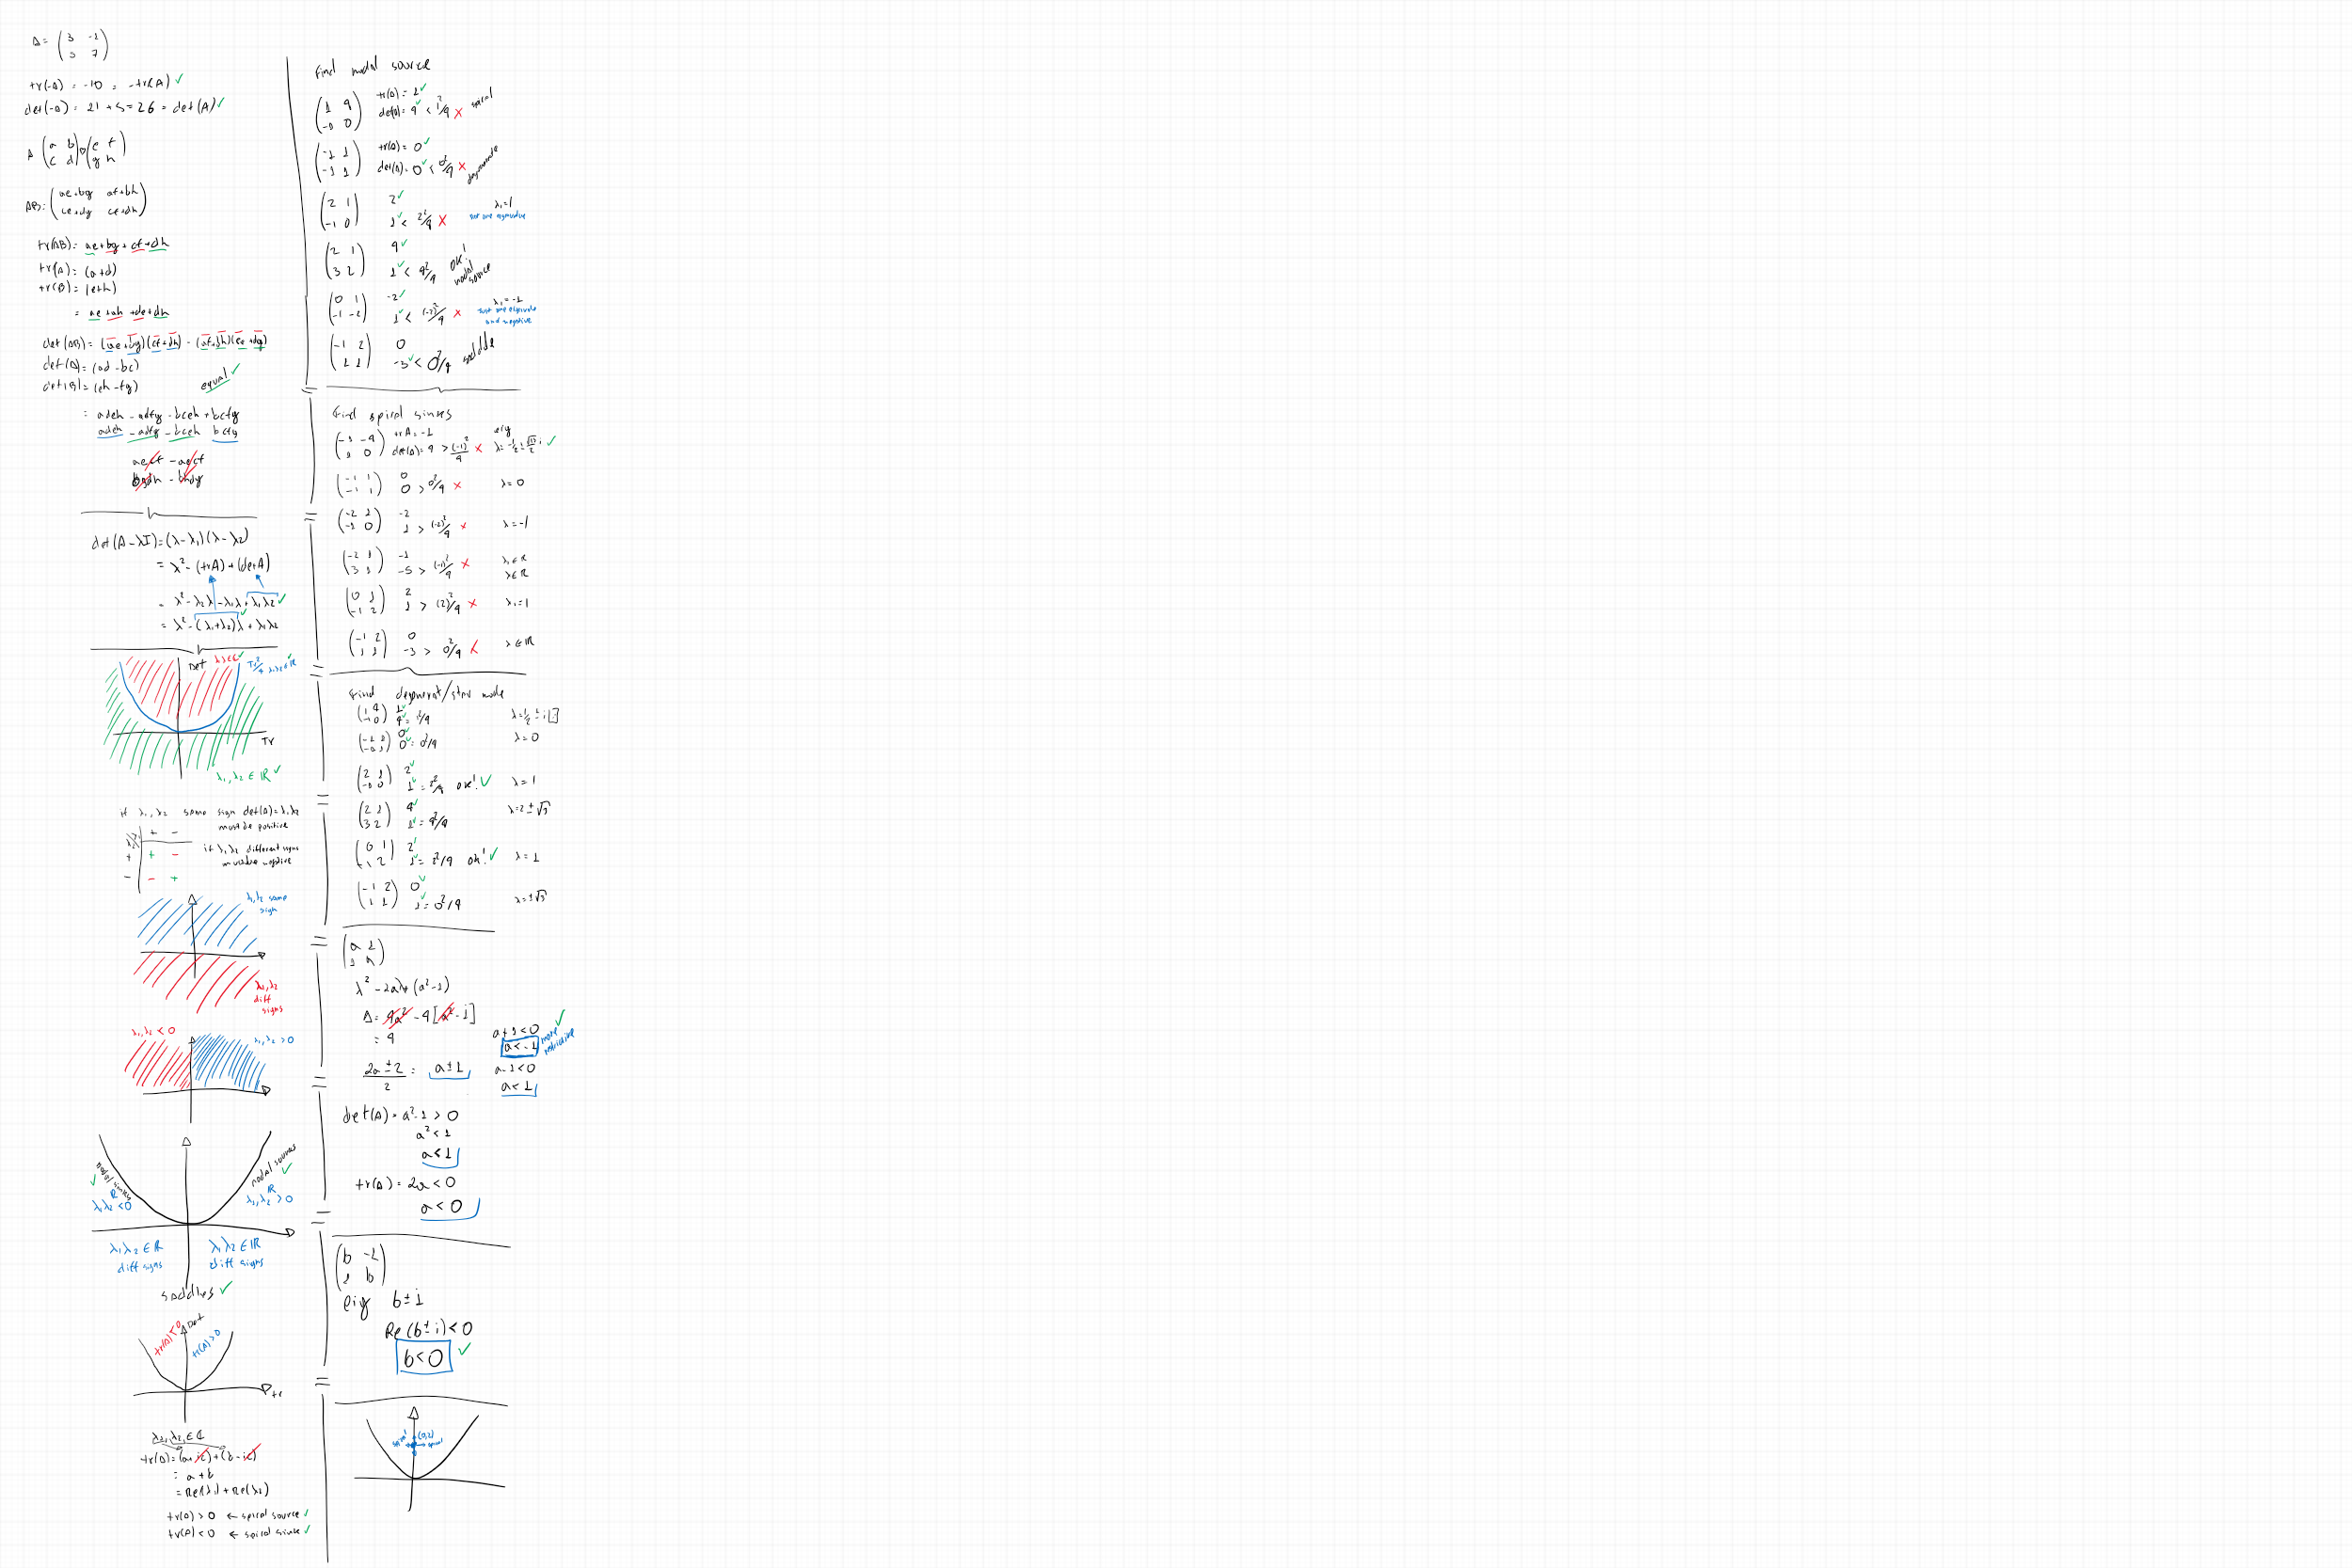 A = ( 3 -1
5 7 )
tr(-A) = -10 = -tr(A) ✓
det(-A) = 21 + 5 = 26 = det(A) ✓
A ( a b
c d ) ( e f
g h )
AB = ( ae+bg af+bh
ce+dg cf+dh )
tr(AB) = ae+bg+cf+dh
tr(A) = (a+d)
tr(B) = (e+h)
= ae+ah+de+dh
det(AB) = (ae+bg)(cf+dh) - (af+bh)(ce+dg)
det(A) = (ad-bc)
det(B) = (eh-fg) equal ✓
= adeh - adfg - bceh + bcfg
adeh - adfg - bceh bcfg
aecf - aecf
bgdh - bhdg
det(A-λI) = (λ-λ1)(λ-λ2)
= λ² - (trA) + (detA)
= λ² - λ2λ - λ1λ + λ1λ2 ✓
= λ² - (λ1+λ2)λ + λ1λ2
Det
Tr
λ1,λ2 ∈ ℝ ✓
if λ1,λ2 same sign det(A)=λ1λ2
must be positive
+ -
+ + -
- - +
if λ1λ2 different signs
must be negative
λ1,λ2 same
sign
λ1,λ2
diff
signs
λ1,λ2 < 0
λ1,λ2 > 0
nodal sinks ✓
nodal sources ✓
ℝ
λ1λ2 < 0
ℝ
λ1,λ2 > 0
λ1λ2 ∈ ℝ
diff signs
λ1λ2 ∈ ℝ
diff signs
saddles ✓
Det
tr(A)<0
tr(A)>0
tr
λ1,λ2 ∈ ℂ
tr(A) = (a+ic)+(b-ic)
= a+b
= Re(λ1) + Re(λ2)
tr(A) > 0 ← spiral source ✓
tr(A) < 0 ← spiral sinks ✓
Find nodal source
( 1 4
-1 0 ) tr(A) = 1 ✓
det(A) = 4 ✓ < 1²/4 ✗ spiral
( -1 1
-1 1 ) tr(A) = 0 ✓
det(A) = 0 ✓ < 0²/4 ✗
( 2 1
-1 0 ) 2 ✓
1 ✓ < 2²/4 ✗ λ1=1
( 2 1
3 2 ) 4 ✓
1 ✓ < 4²/4 ok!
nodal
source
( 0 1
-1 -2 ) -2 ✓
1 ✓ < (-2)²/4 ✗ λ1=-1
just one eigenvalue
and negative
( -1 2
1 1 ) 0
-3 ✓ < 0²/4 saddle
Find spiral sinks
( -1 -4
1 0 ) trA = -1
det(A) = 4 > (-1)²/4 ✗ eig
λ = -1/2 ± √15/2 i ✓
( -1 1
-1 1 ) 0
0 > 0²/4 ✗ λ=0
( -2 1
-1 0 ) -2
1 > (-2)²/4 ✗ λ=-1
( -2 1
3 1 ) -1
-5 > (-1)²/4 ✗ λ1∈ℝ
λ∈ℝ
( 0 1
-1 2 ) 2
1 > (2)²/4 ✗ λ1=1
( -1 2
1 1 ) 0
-3 > 0²/4 ✗ λ∈ℝ
Find degenerat/star node
( 1 4
-1 0 ) 1 ✓
4 = 1²/4
( -1 1
-1 1 ) 0 ✓
0 ✓ = 0²/4 λ=0
( 2 1
-1 0 ) 2 ✓
1 ✓ = 2²/4 ok! ✓ λ=1
( 2 1
3 2 ) 4 ✓
1 ✓ = 4²/4 λ=2±√3
( 0 1
-1 2 ) 2 ✓
1 ✓ = 2²/4 ok! ✓ λ=1
( -1 2
1 1 ) 0 ✓
= 0²/4 λ=±√3
( a 1
1 a )
λ² - 2aλ + (a²-1)
Δ = 4a² - 4[a²-1]
= 4
(2a±2)/2 = a±1
a+1<0
a<-1 more restrictive ✓
a-1<0
a<1
det(A) = a²-1 > 0
a² < 1
a < 1
tr(A) = 2a < 0
a < 0
( b -1
1 b )
eig b±i
Re(b±i) < 0
b<0 ✓
(0,2)
spiral